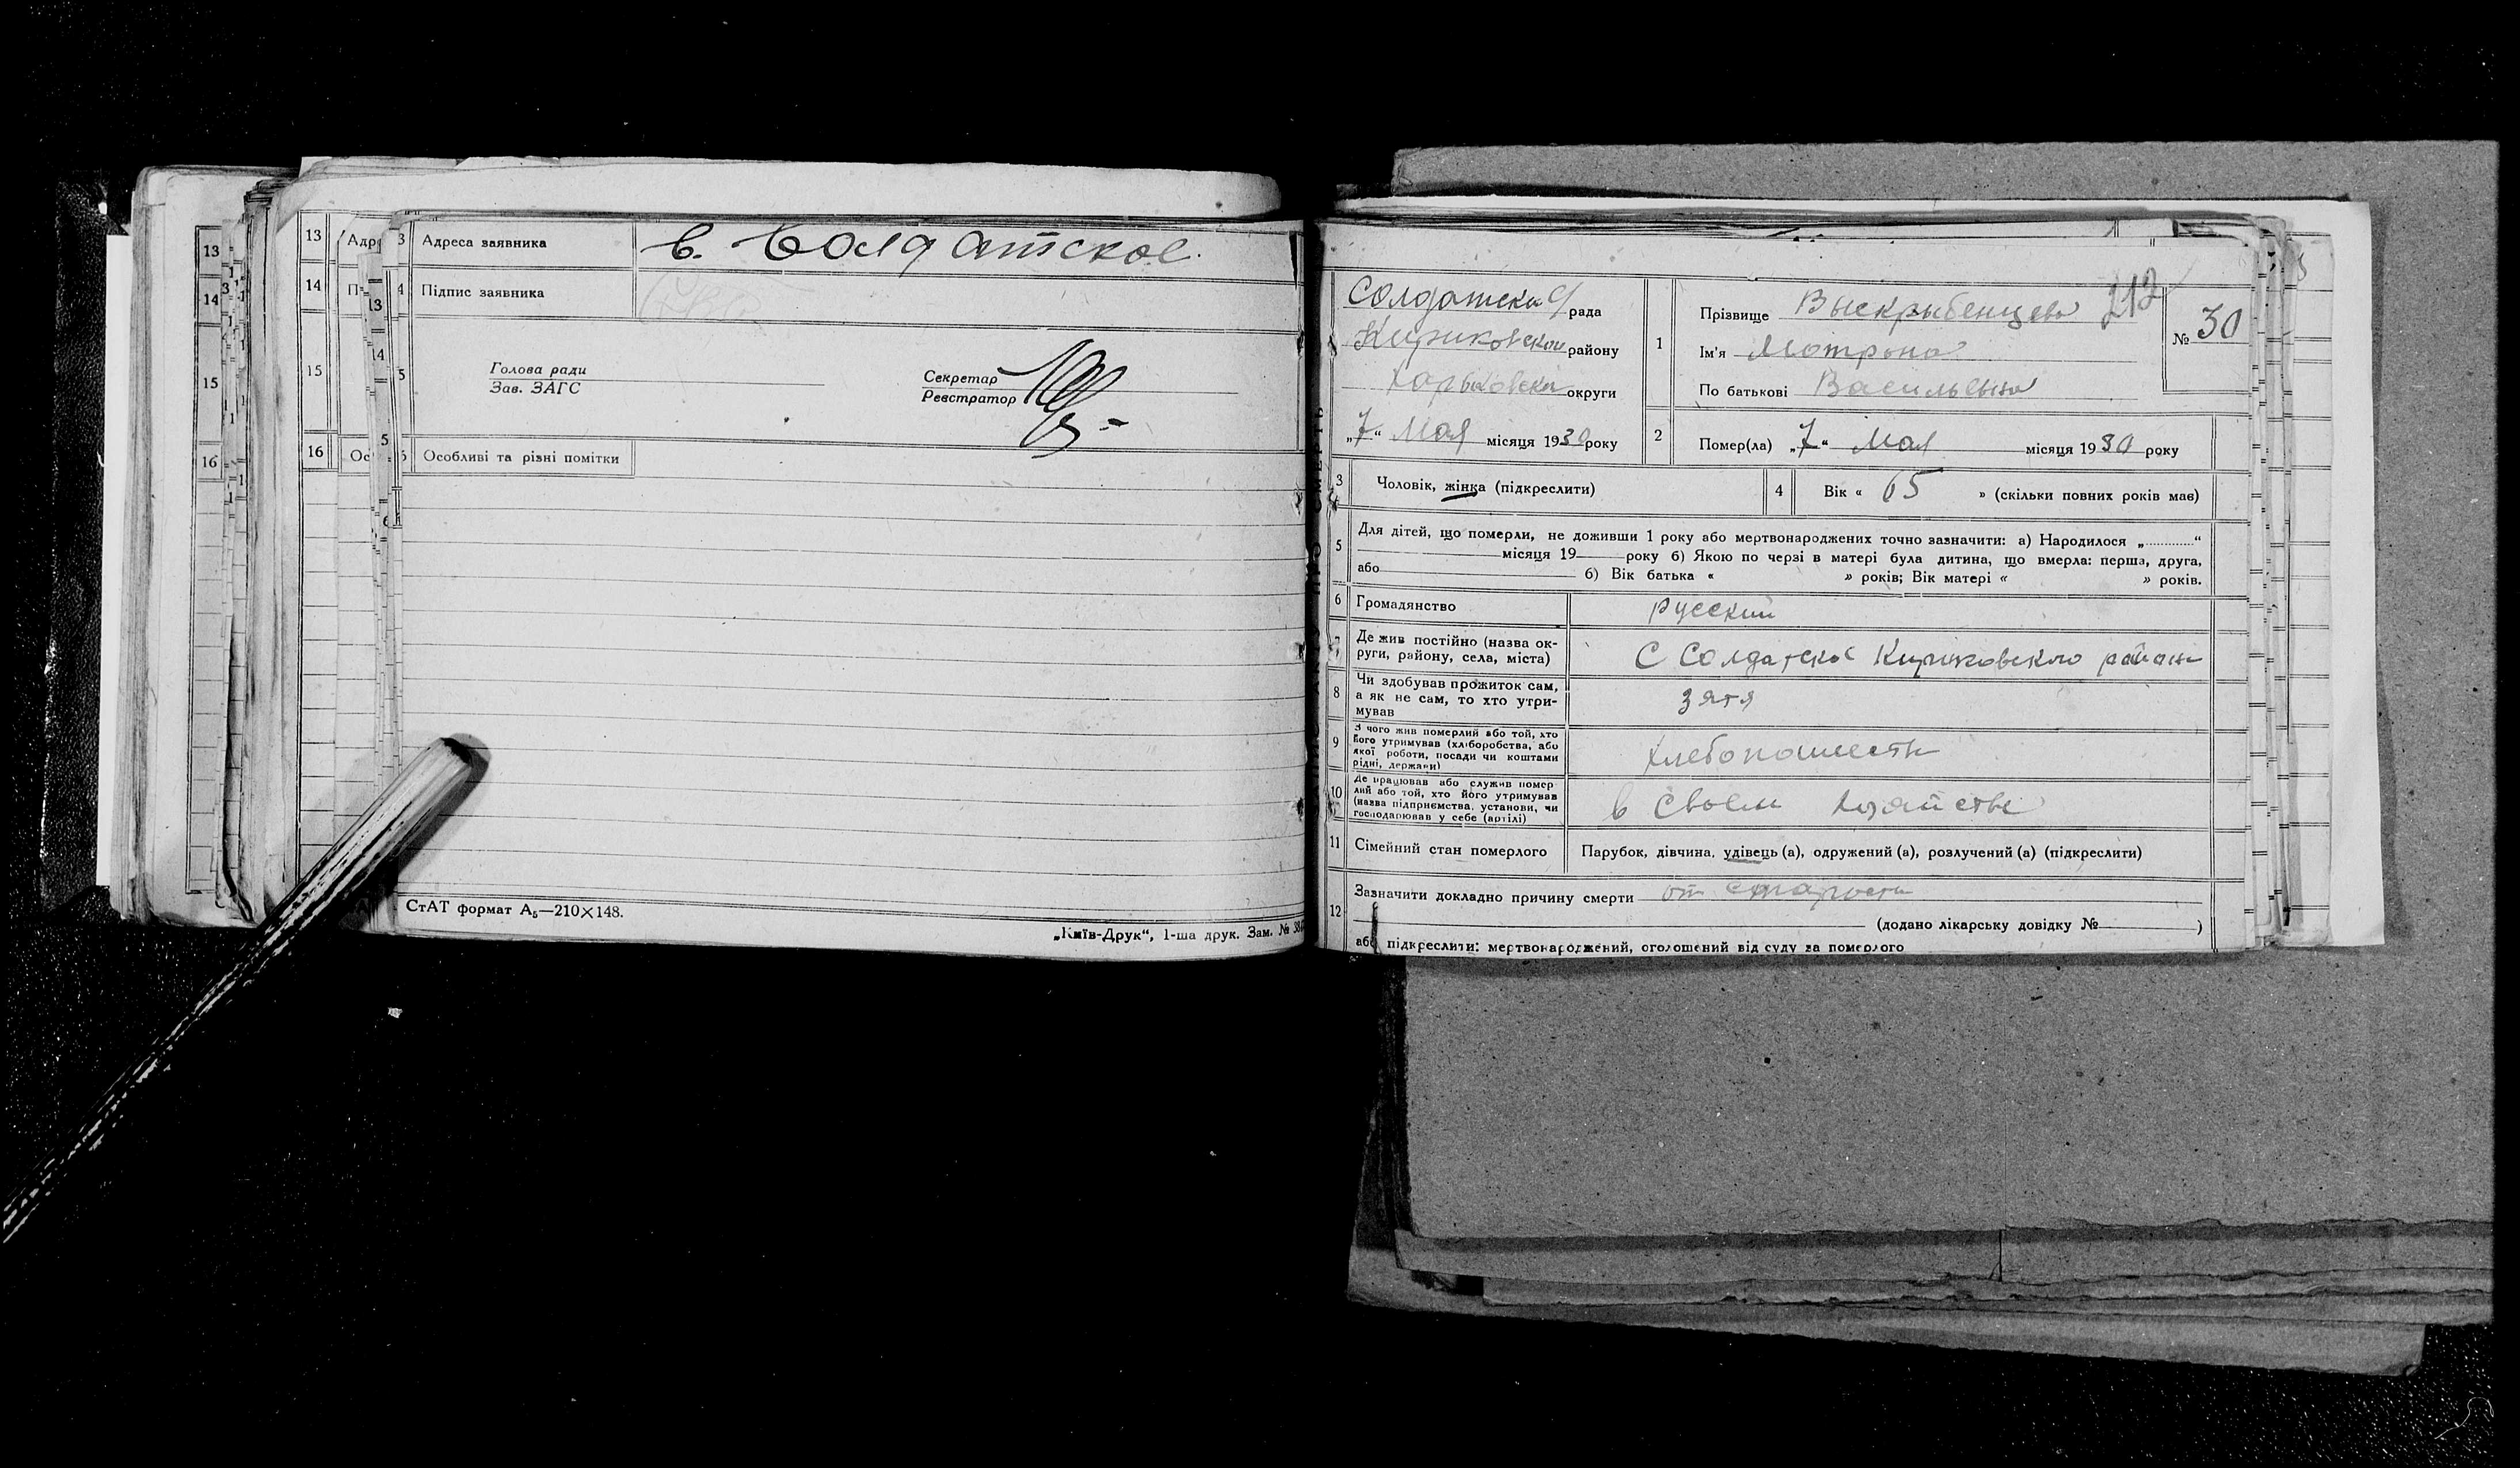 13 Адреса заявника с. Солдатское
14 Підпис заявника
15 Голова ради
Зав. ЗАГС
Секретар
Реєстратор
16 Особливі та різні помітки
СтАТ формат А5—210×148.
„Київ-Друк“, 1-ша друк. Зам. №
Солдатска с/рада
Кириковскои району
Харьковскои округи
„7“ Мая місяця 1930 року
1 Прізвище Выскрыбенцева 212
Ім'я Мотрона
По батькові Васильевна
№ 30
2 Помер(ла) „7“ Мая місяця 1930 року
3 Чоловік, жінка (підкреслити)
4 Вік « 65 » (скільки повних років мав)
5 Для дітей, що померли, не доживши 1 року або мертвонароджених точно зазначити: а) Народилося „ “
місяця 19 року б) Якою по черзі в матері була дитина, що вмерла: перша, друга,
або б) Вік батька « » років; Вік матері « » років.
6 Громадянство русский
7 Де жив постійно (назва округи, району, села, міста) С Солдатское Кириковского района
8 Чи здобував прожиток сам,
а як не сам, то хто утри-
мував зятя
9 З чого жив померлий або той, хто
його утримував (хліборобства, або
якої роботи, посади чи коштами
рідні, держави) хлебопашества
10 Де працював або служив помер
лий або той, хто його утримував
(назва підприємства, установи, чи
господарював у себе (артілі) в своем хозяйстве
11 Сімейний стан померлого Парубок, дівчина, удівець (а), одружений (а), розлучений (а) (підкреслити)
12 Зазначити докладно причину смерти от старости
(додано лікарську довідку № )
або підкреслити: мертвонароджений, оголошений від суду за померлого